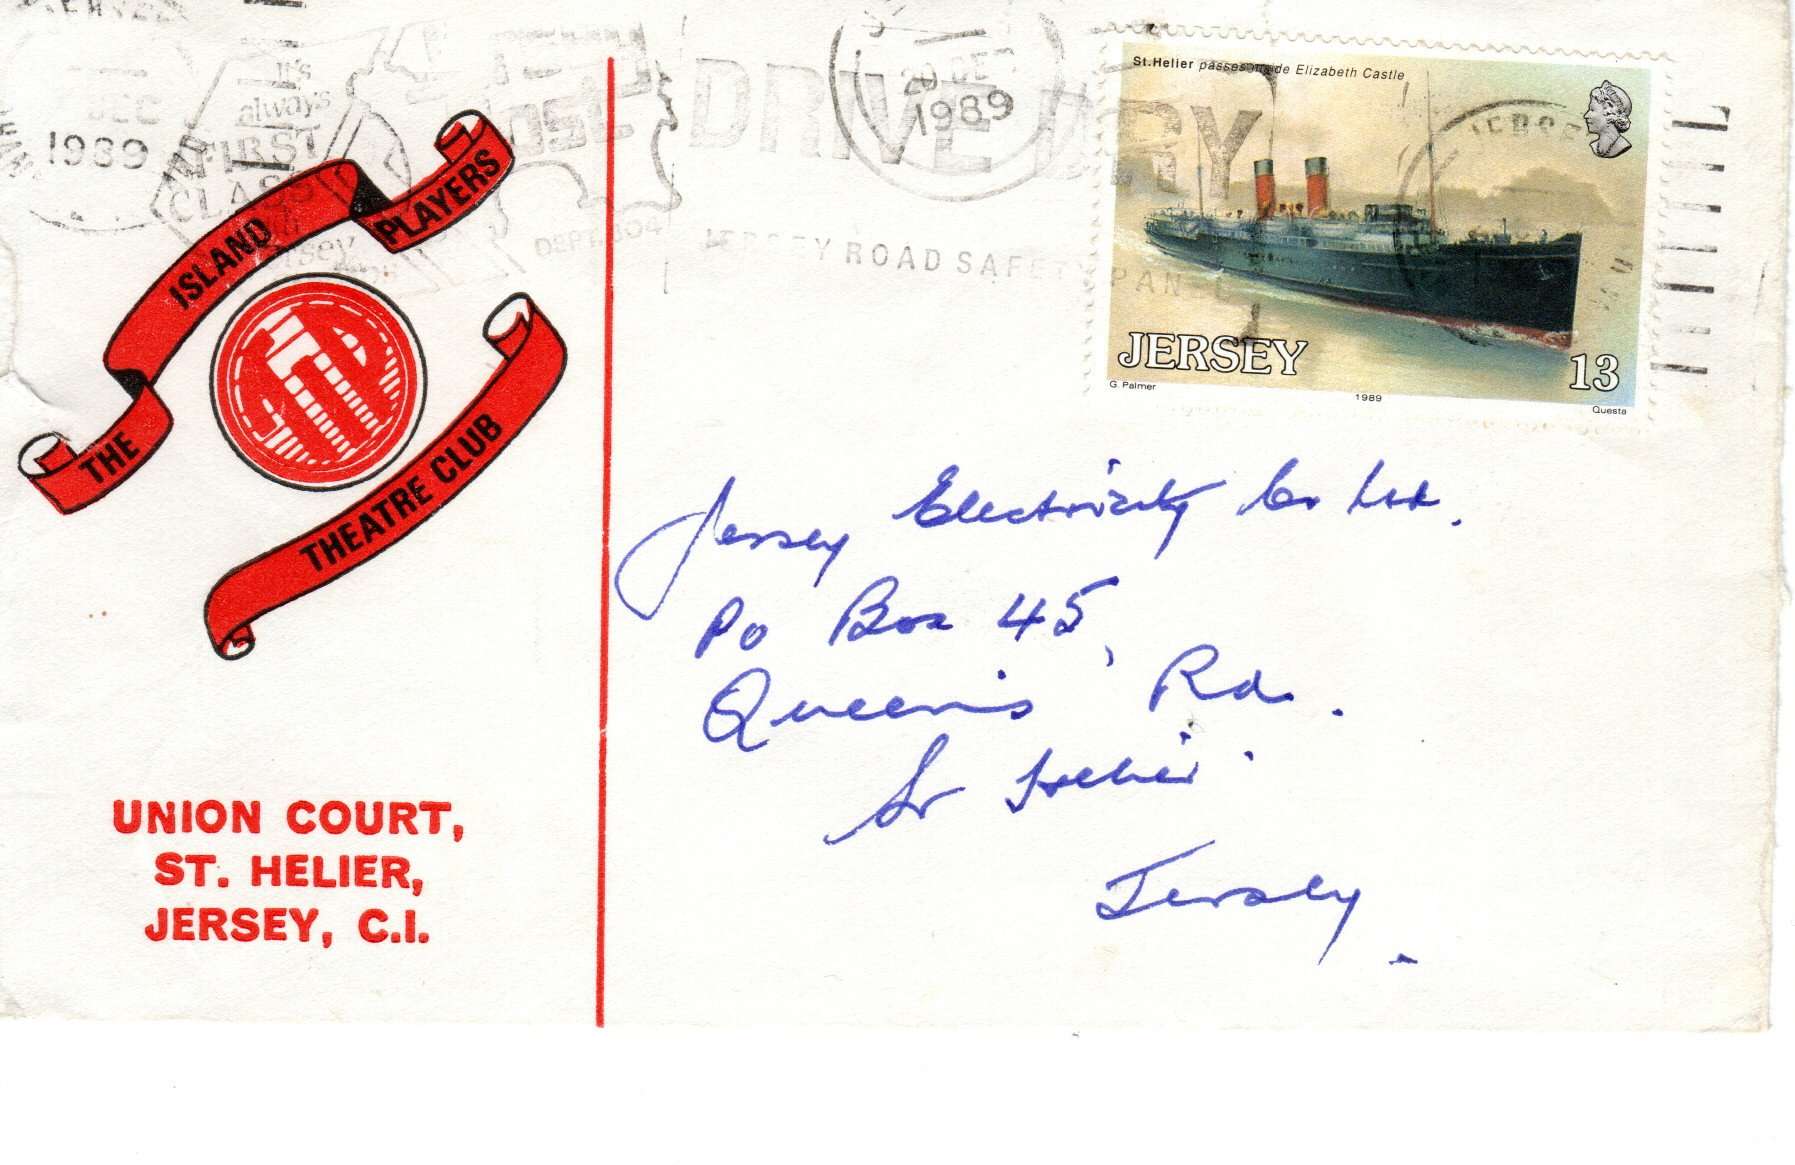 DEC
1989
It's
always
FIRST
CLASS
DEPT. 304
DRIVE DRY
JERSEY ROAD SAFETY PANEL
20 DE
1989
JERSE
St.Helier passes outside Elizabeth Castle
JERSEY
13
G. Palmer
1989
Questa
THE ISLAND PLAYERS
THEATRE CLUB
UNION COURT,
ST. HELIER,
JERSEY, C.I.
Jersey Electricity Co Ltd.
PO Box 45,
Queen's Rd.
St Helier.
Jersey.